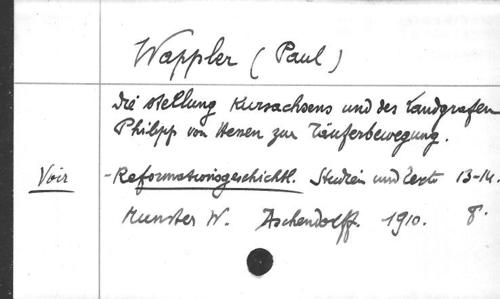 Wappler (Paul)
Die Stellung Kursachsens und des Landgrafen
Philipp von Hessen zur Täuferbewegung.
Voir - Reformationsgeschichtl. Studien und Texte 13-14.
Munster W. Aschendorff. 1910. 8°.